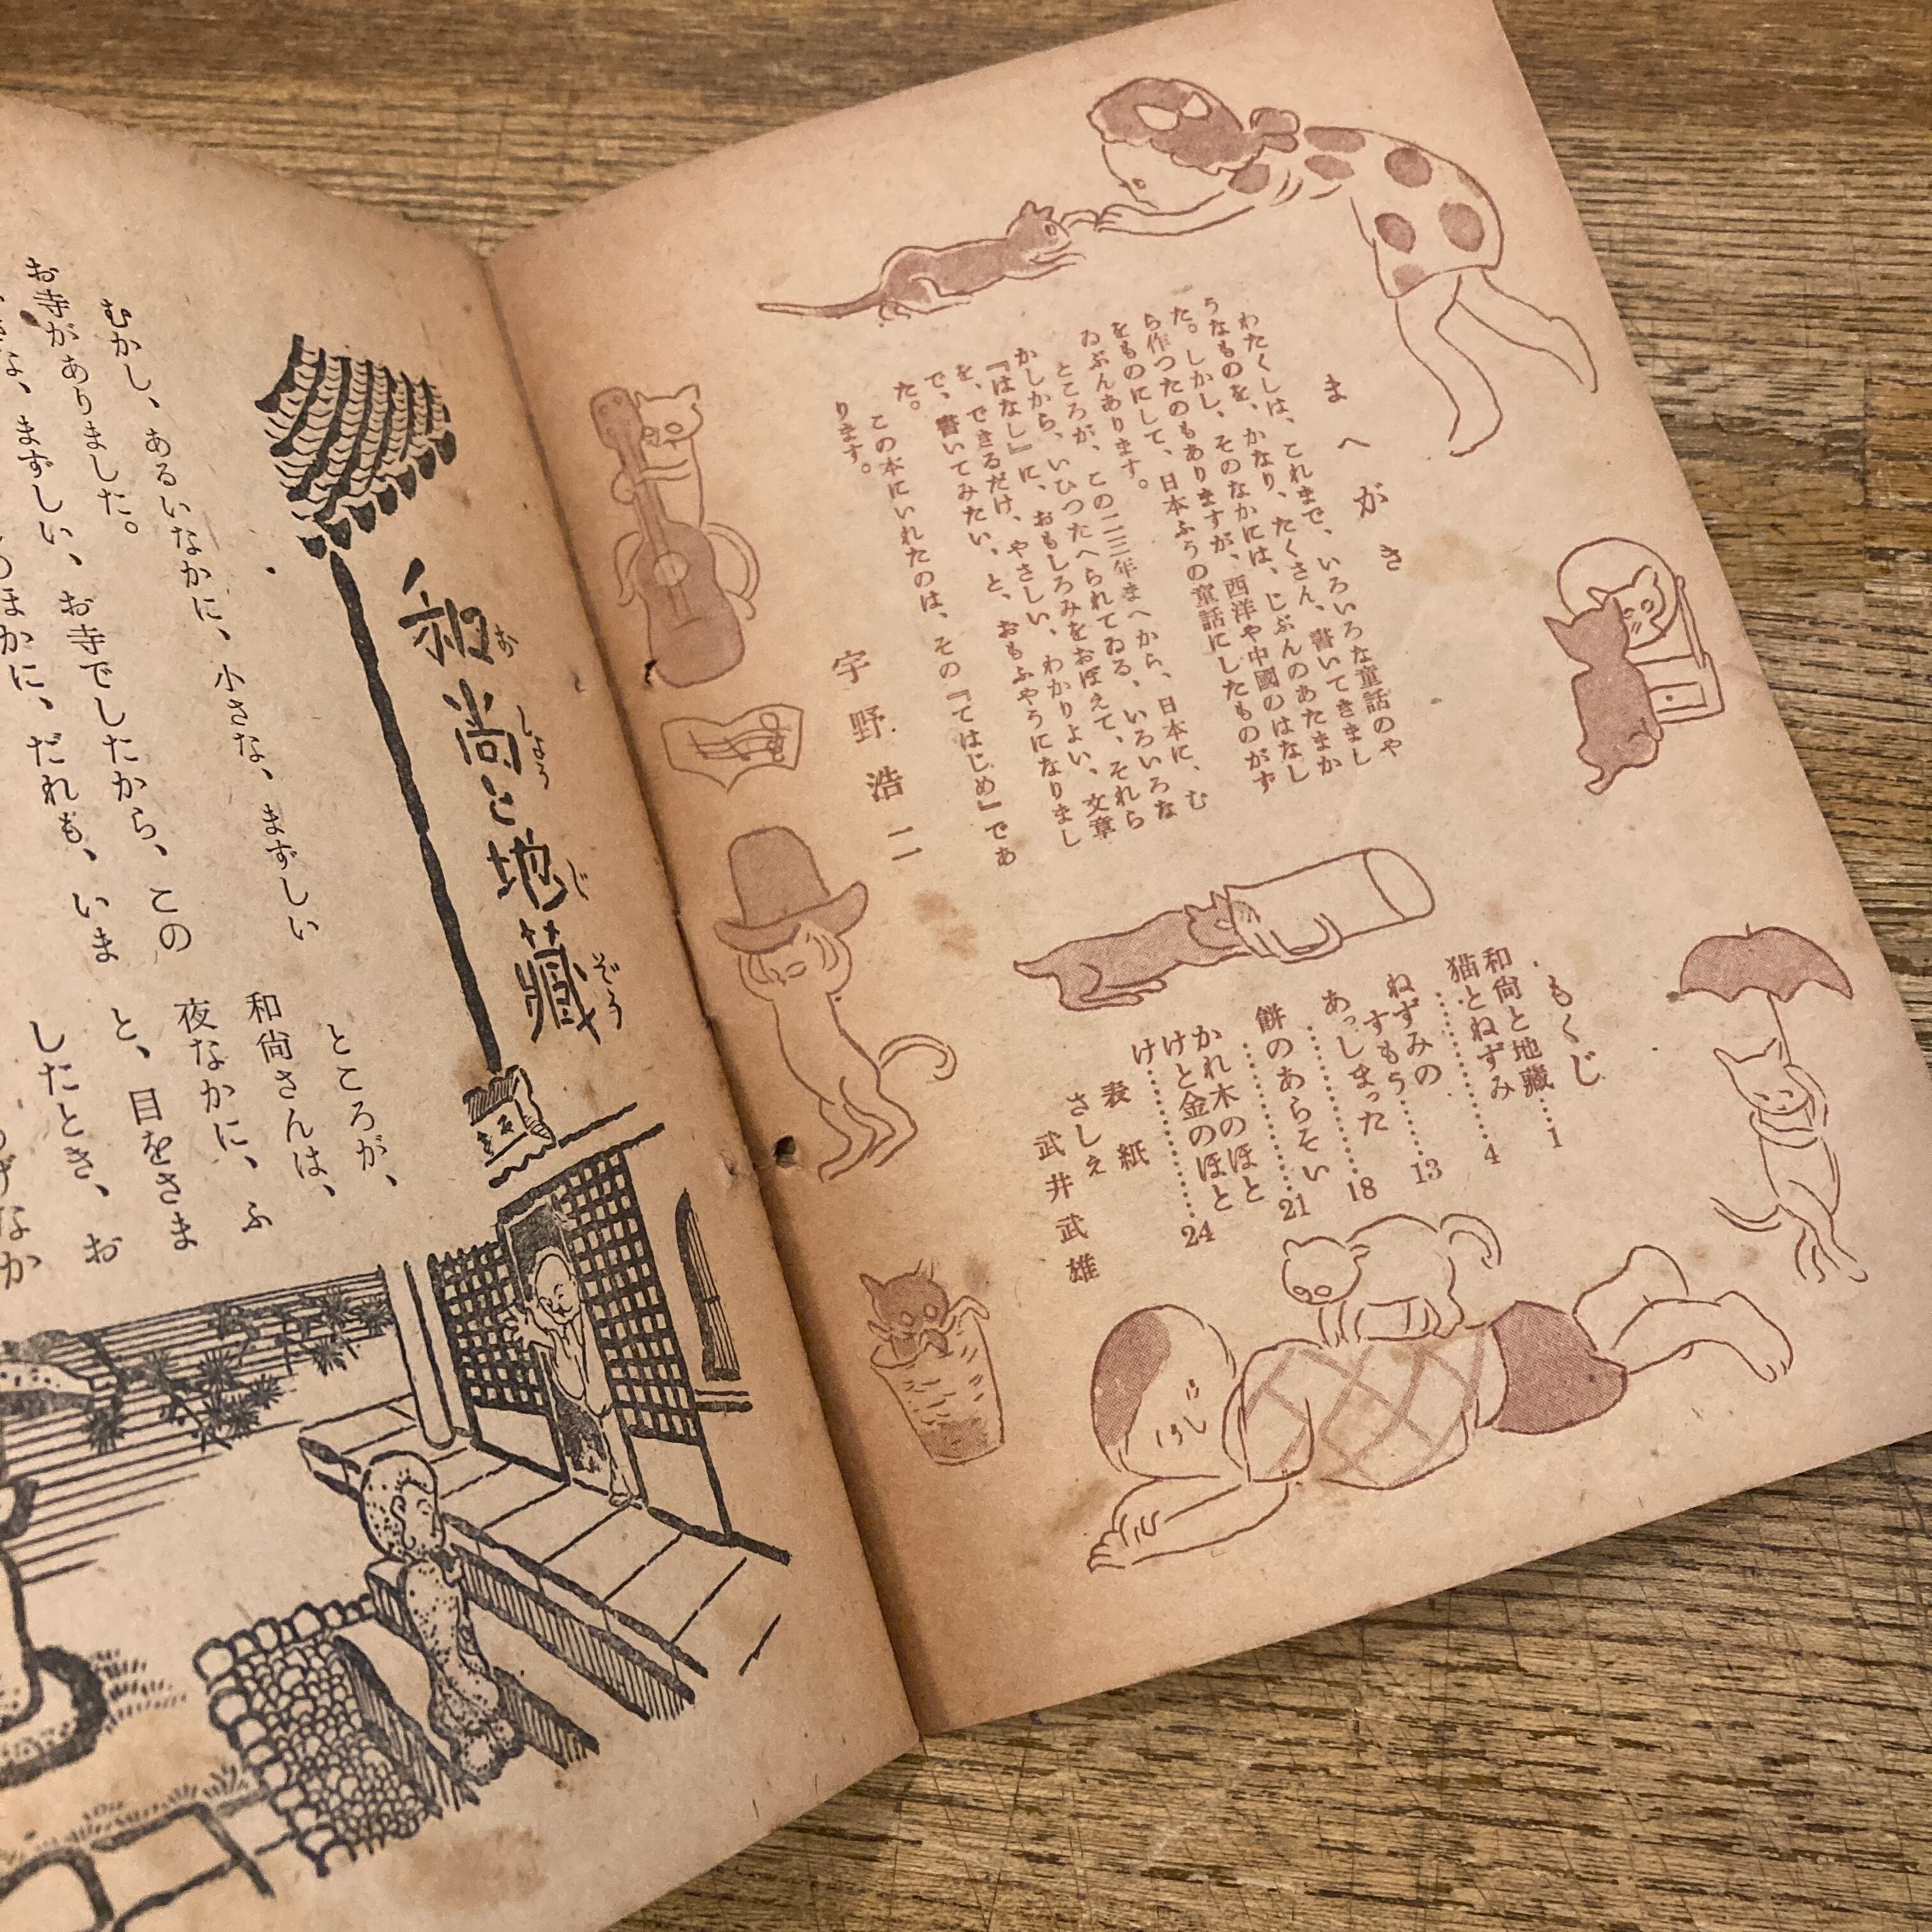 まへがき
わたくしは、これまで、いろいろな童話のや
うなものを、かなり、たくさん、書いてきまし
た。しかし、そのなかには、じぶんのあたまか
ら作つたのもありますが、西洋や中國のはなし
をものにして、日本ふうの童話にしたものがず
ゐぶんあります。
ところが、この二三年まへから、日本に、む
かしから、いひつたへられてゐる、いろいろな
『はなし』に、おもしろみをおぼえて、それら
を、できるだけ、やさしい、わかりよい、文章
で、書いてみたい、と、おもふやうになりまし
た。
この本にいれたのは、その『てはじめ』であ
ります。
宇野浩二
もくじ
和尙と地藏……1
猫とねずみ
……………4
ねずみの
すもう……13
あっしまった
……………18
餅のあらそい
……………21
かれ木のほと
けと金のほと
け……………24
表紙
さしえ
武井武雄
和尚と地藏
おしょう
じぞう
むかし、あるいなかに、小さな、まずしい
お寺がありました。
まずしい、お寺でしたから、この
ほかに、だれも、いま
ところが、
和尙さんは、
夜なかに、ふ
と、目をさま
したとき、お